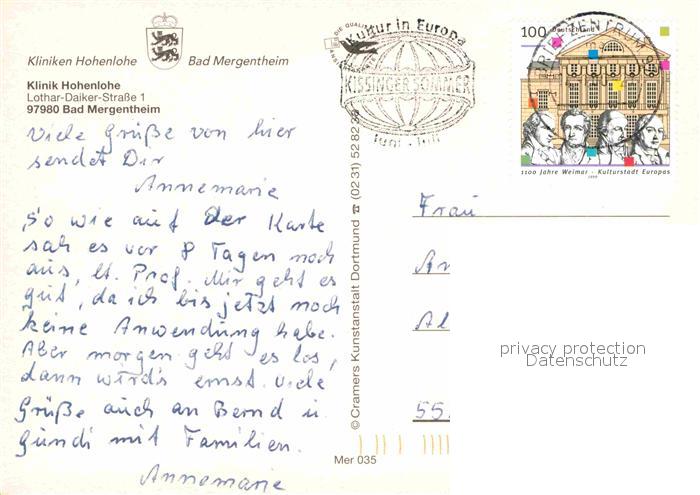 Kliniken Hohenlohe Bad Mergentheim
Klinik Hohenlohe
Lothar-Daiker-Straße 1
97980 Bad Mergentheim
Viele Grüße von hier
sendet Dir
Annemarie
So wie auf der Karte
sah es vor 8 Tagen noch
aus, lt. Prof. Mir geht es
gut, da ich bis jetzt noch
keine Anwendung habe.
Aber morgen geht es los,
dann wird's ernst. Viele
Grüße auch an Bernd u.
Gundi mit Familien.
Annemarie
© Cramers Kunstanstalt Dortmund ☎ (02 31) 52 82 38
Mer 035
Kultur in Europa
KISSINGER SOMMER
Juni - Juli
100 Deutschland
1100 Jahre Weimar - Kulturstadt Europas
1999
Frau
55
privacy protection
Datenschutz